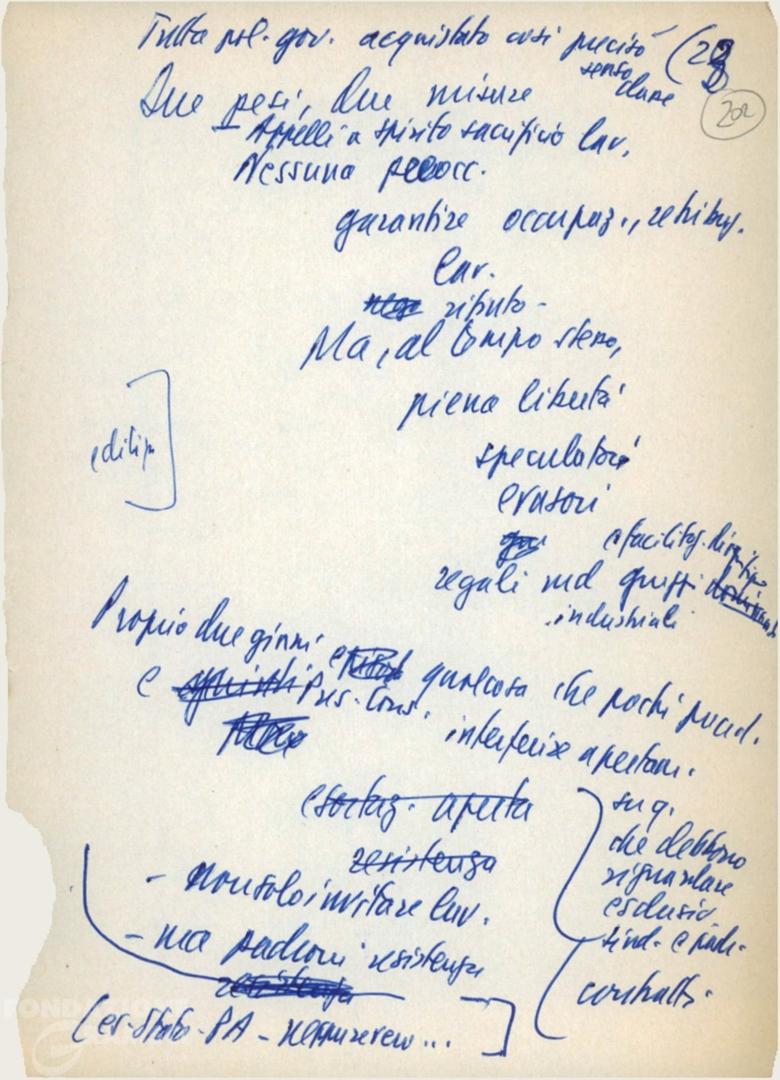 Tutta pol. gov. acquistato così preciso (28
senso
classe
202
Due pesi, due misure
- Appelli a spirito sacrificio lav.
Nessuna preocc.
garantire occupaz., retribuz.
lav.
rifiuto -
Ma, al tempo stesso,
piena libertà
speculatori
evasori
edilizia
e facilitaz. di ogni tipo
regali ai grossi
industriali
Proprio due giorni
e Pres. Cons. qualcosa che pochi preced.
interferire apertam.
esortaz. aperta
resistenza
su q.
che debbono
riguardare
esclusiv.
sind. e padr.
contratti.
- non solo invitare lav.
- ma padroni resistenza
resistenza
(es. Stato - PA -
FONDAZIONE